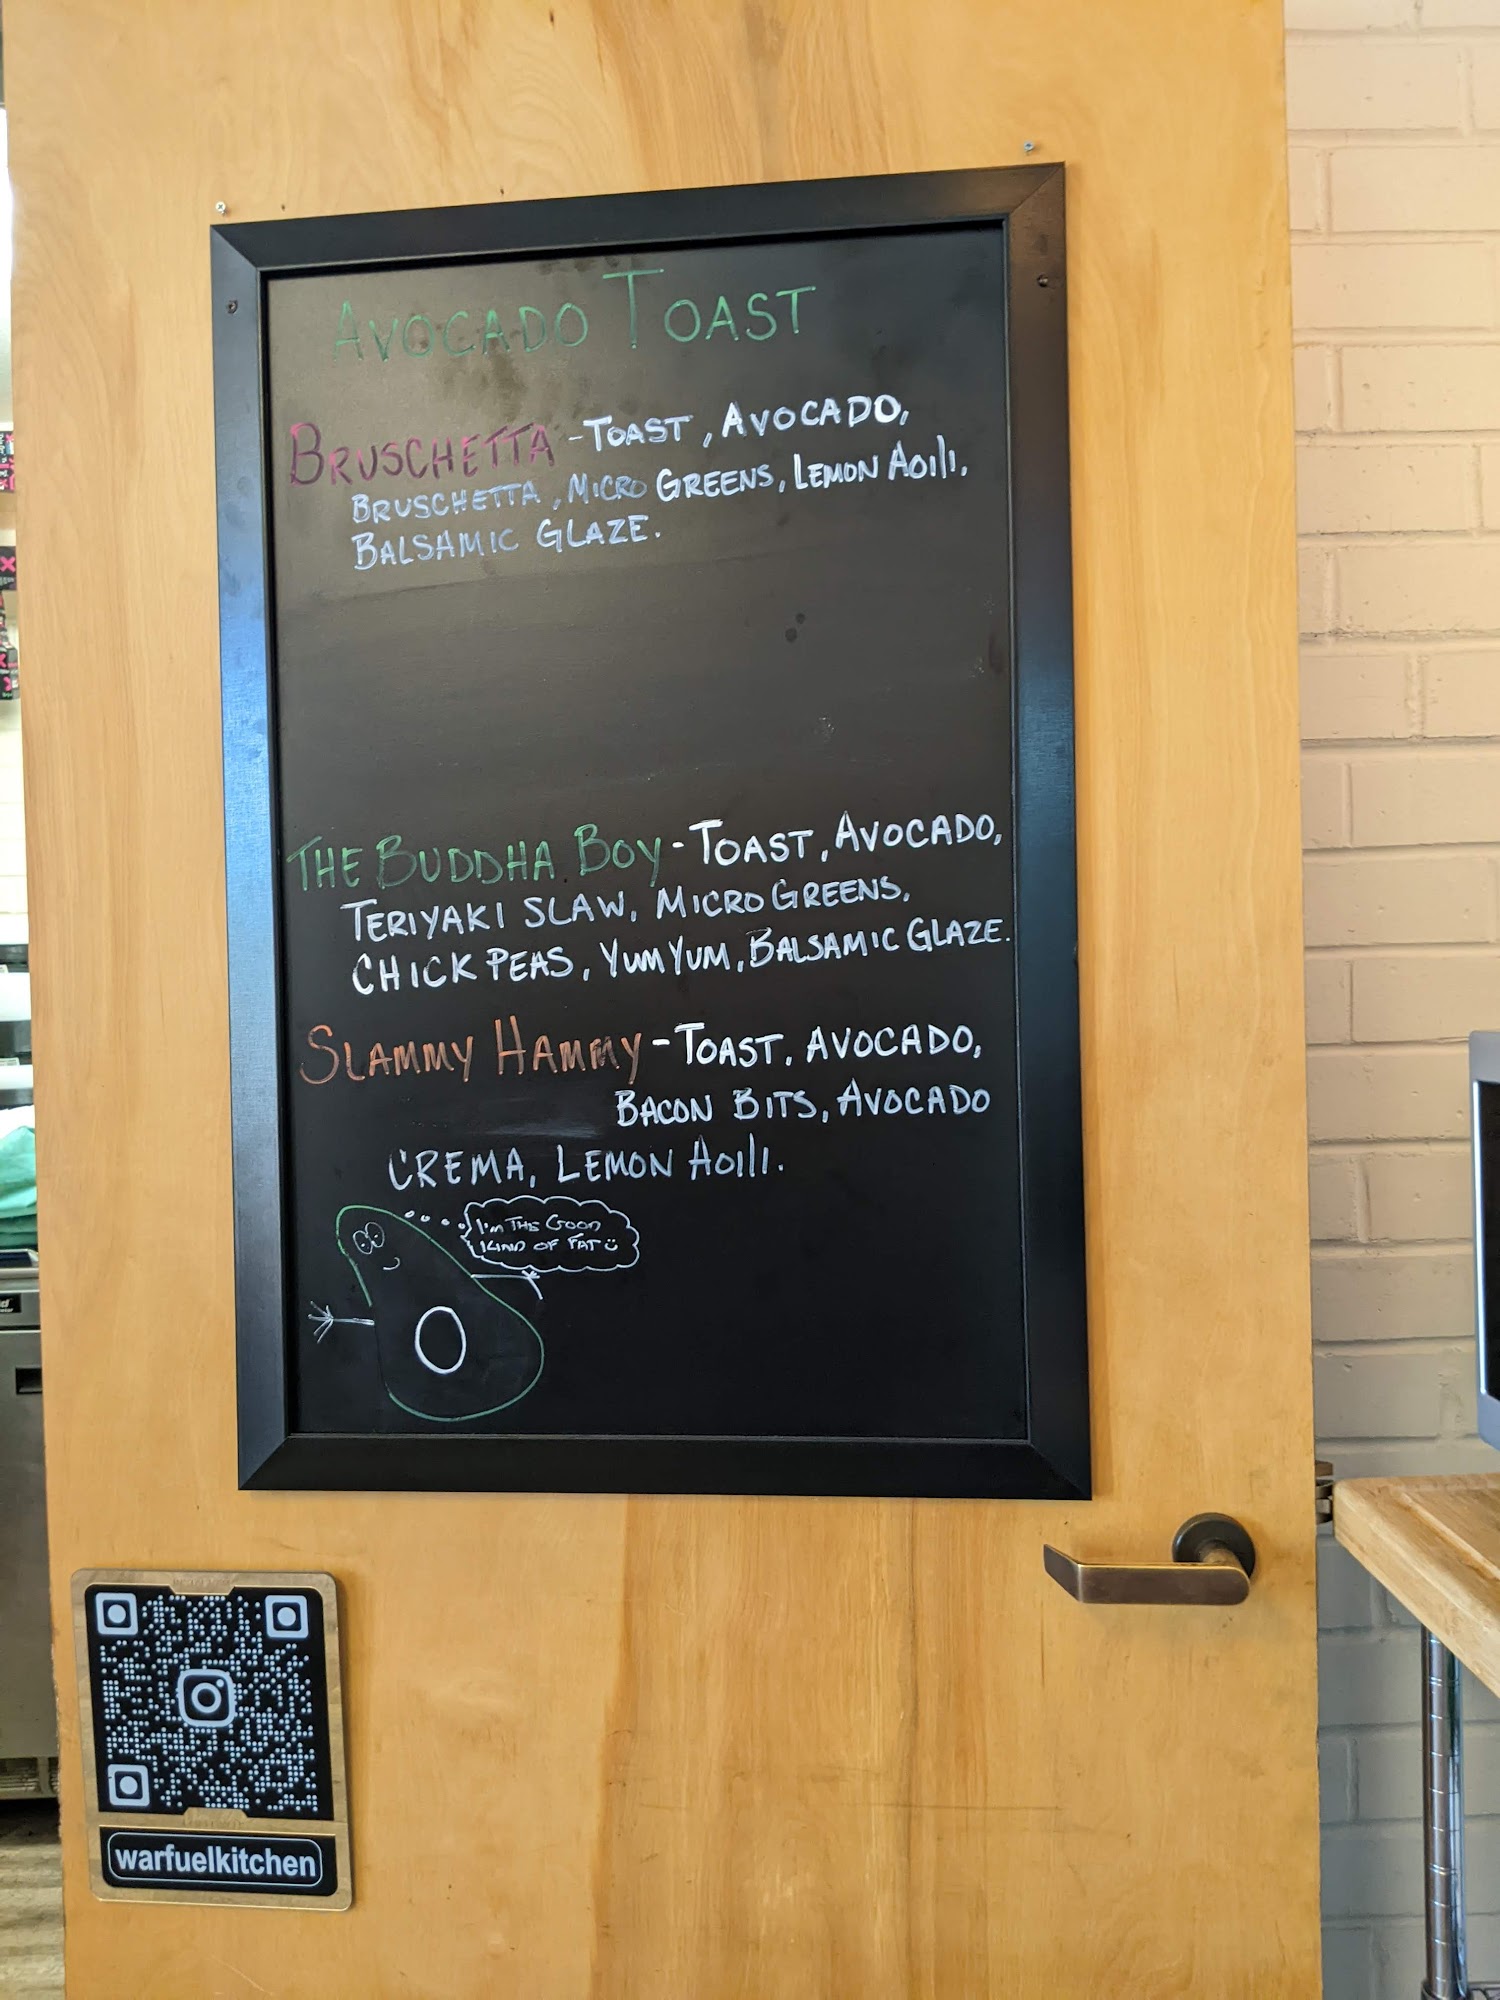 AVOCADO TOAST
BRUSCHETTA - TOAST, AVOCADO,
BRUSCHETTA, MICRO GREENS, LEMON AOILI,
BALSAMIC GLAZE.
THE BUDDHA BOY - TOAST, AVOCADO,
TERIYAKI SLAW, MICRO GREENS,
CHICK PEAS, YUM YUM, BALSAMIC GLAZE.
SLAMMY HAMMY - TOAST, AVOCADO,
BACON BITS, AVOCADO
CREMA, LEMON AOILI.
I'M THE GOOD
KIND OF FAT
warfuelkitchen